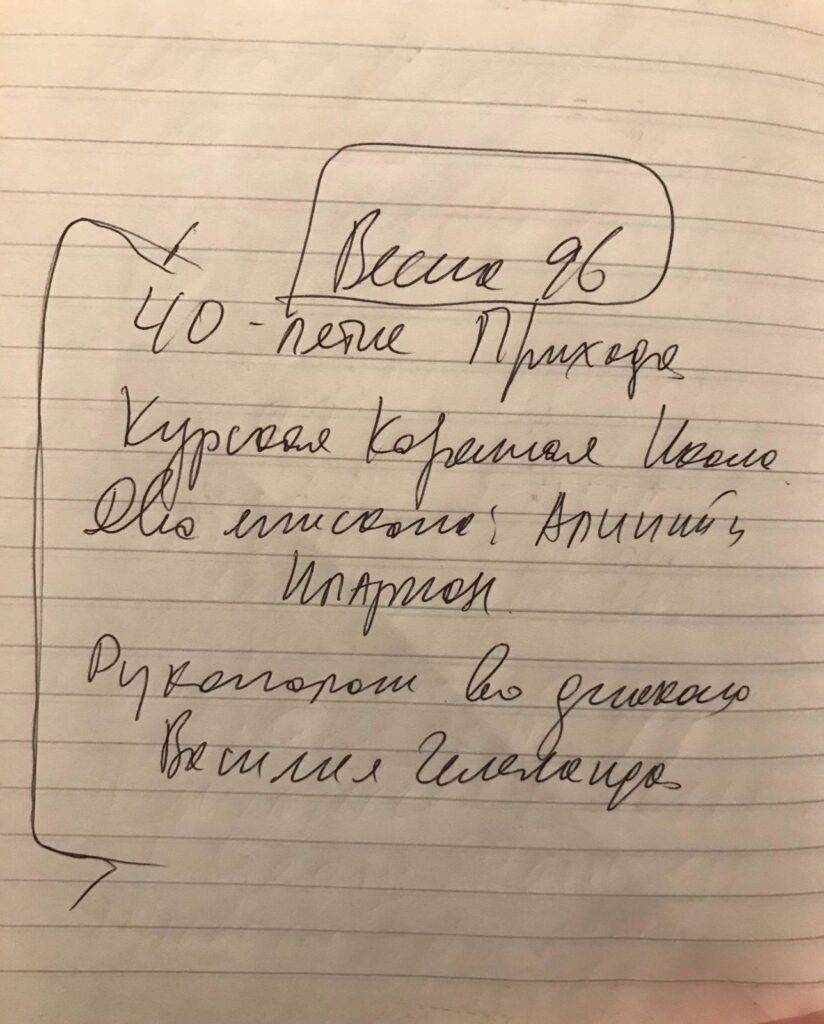 Весна 96
40-летие Прихода
Курская Коренная Икона
Два епископа: Алипийъ
Иларион
Рукополож во диакона
Василия